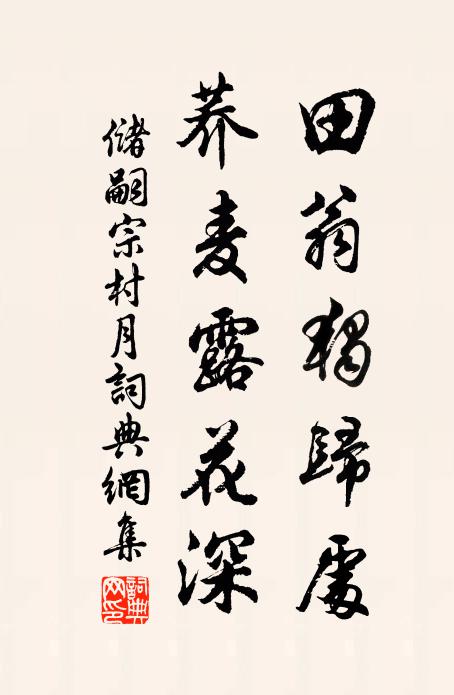 田翁獨歸處
荞麦露花深
儲嗣宗村月詞典網集
詞典网印